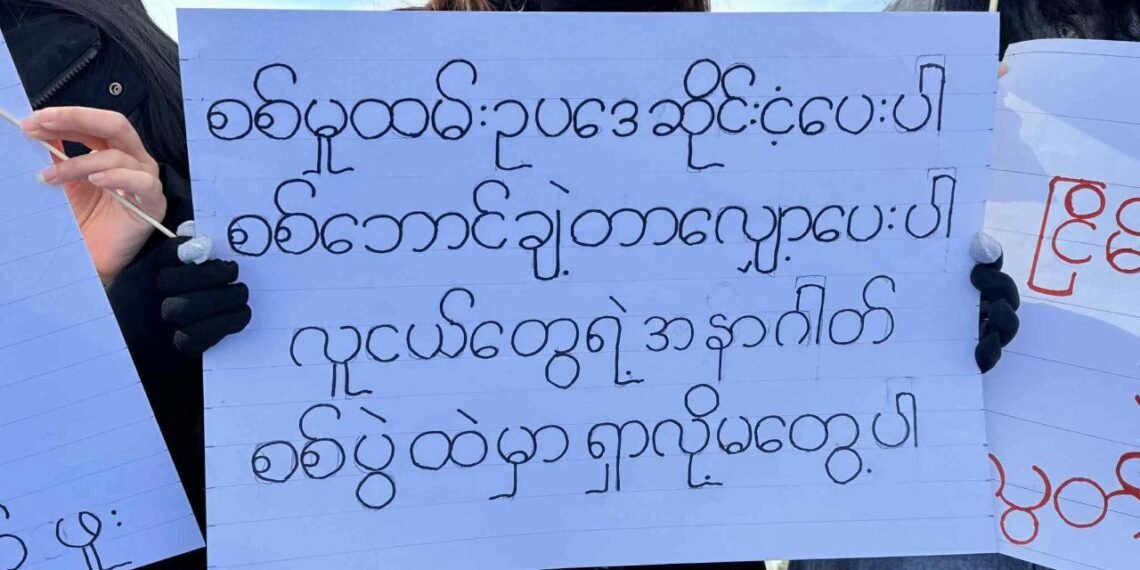 စစ်မှုထမ်းဥပဒေဆိုင်းငံ့ပေးပါ
စစ်ဘောင်ချဲ့တာလျှော့ပေးပါ
လူငယ်တွေရဲ့အနာဂါတ်
စစ်ပွဲထဲမှာရှာလို့မတွေ့ပါ
ဖူး